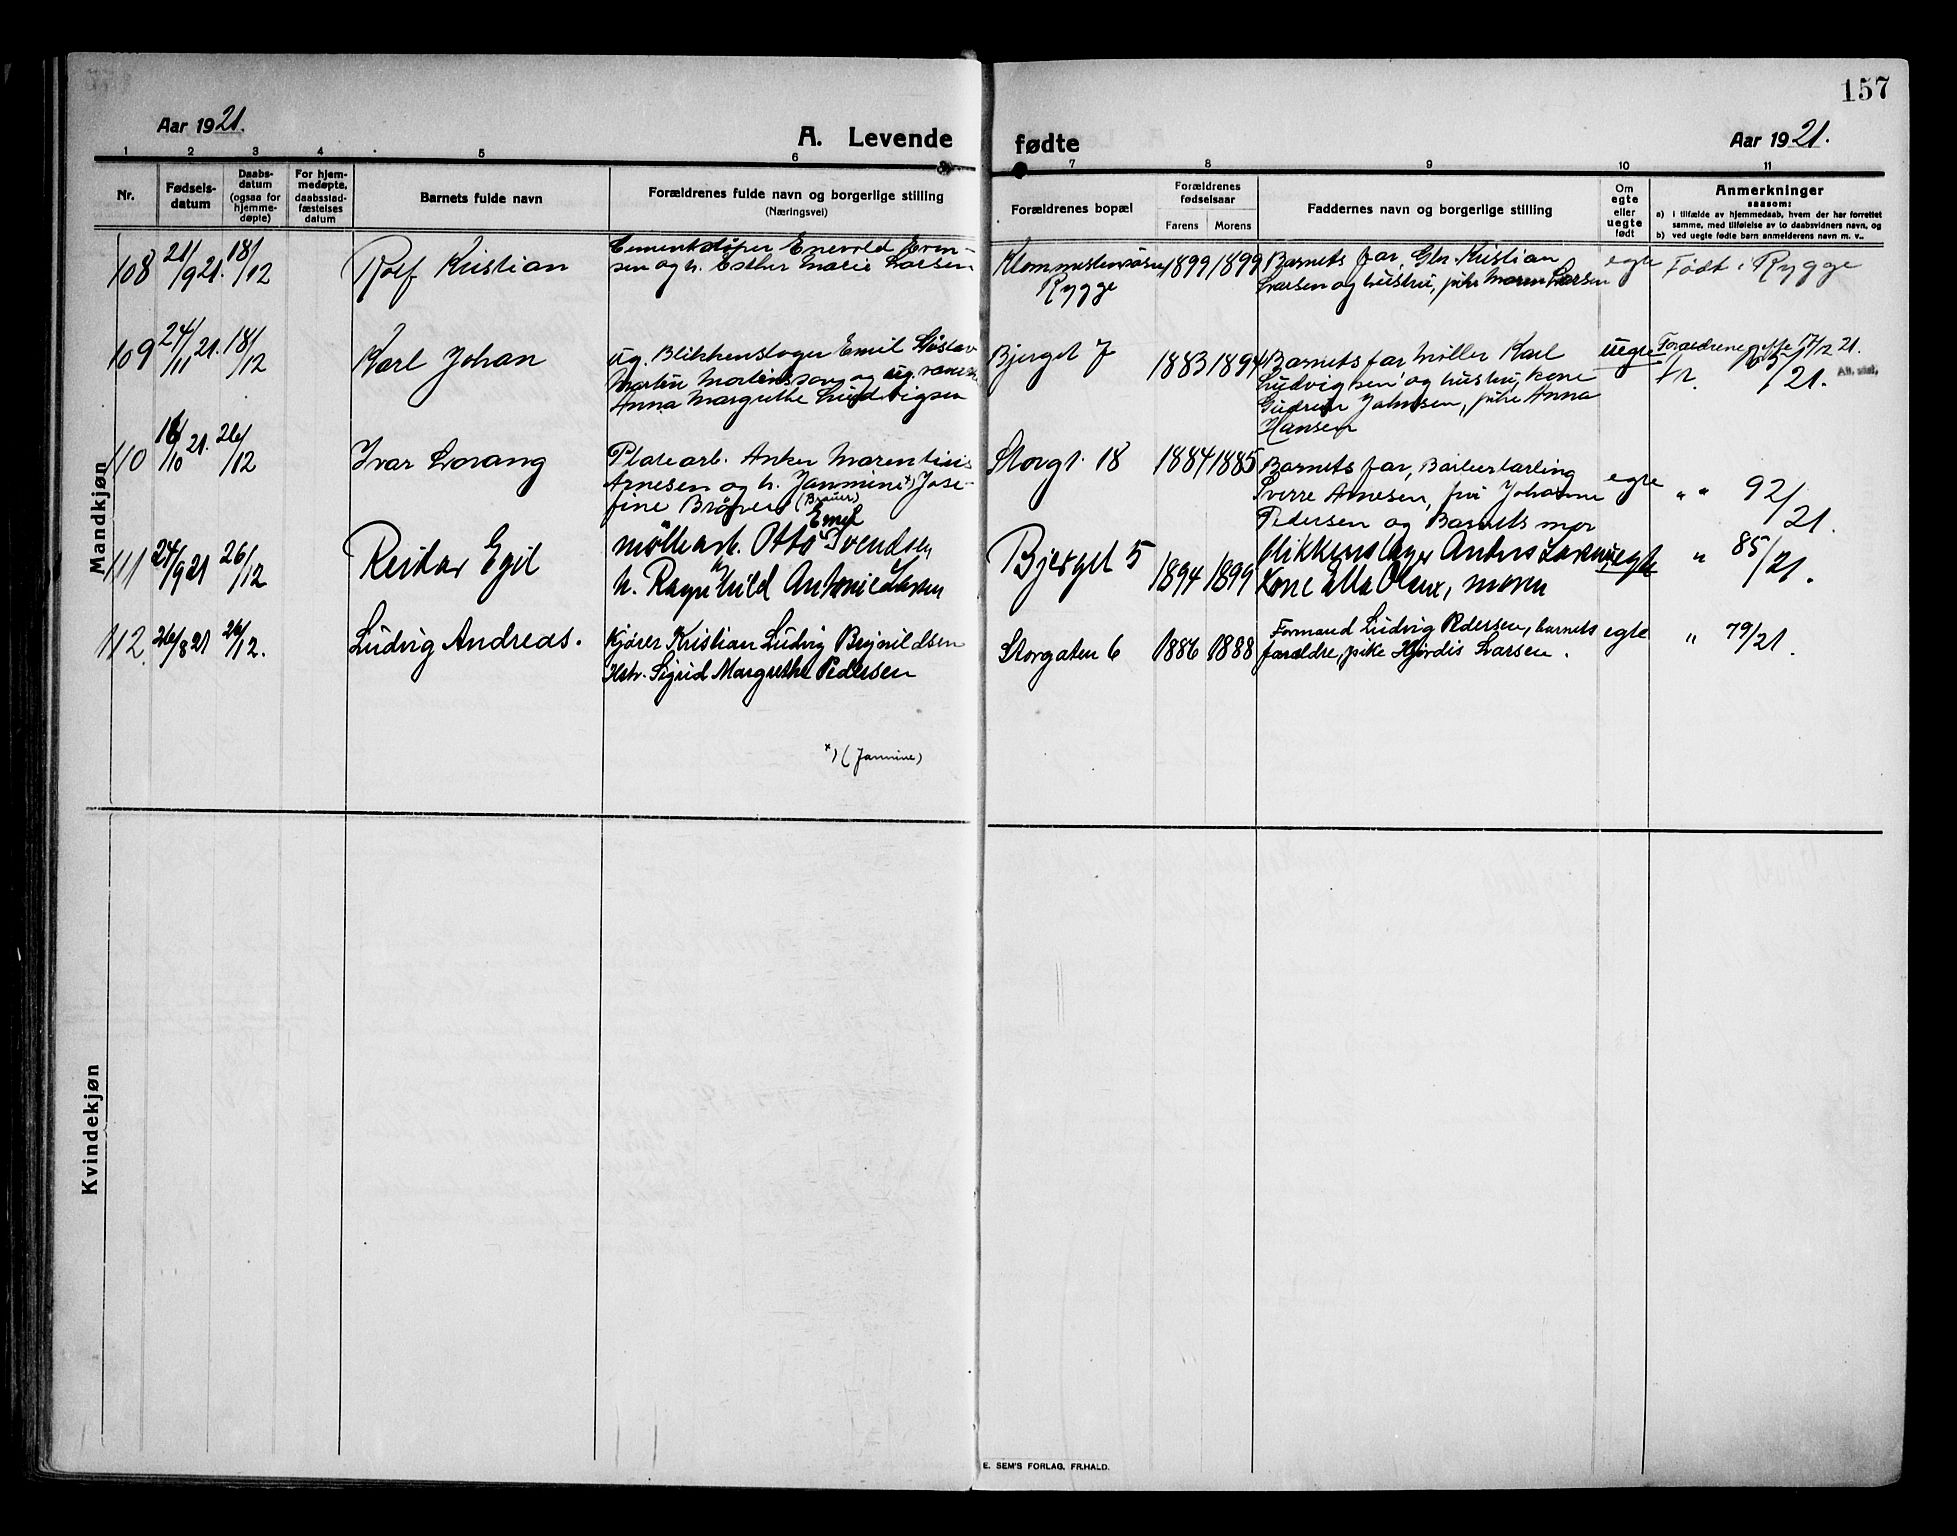 157
Aar 1921.
A. Levende fødte
Aar 1921.
1 2 3 4 5 6 7 8 9 10 11
Nr.
Fødsels-
datum
Daabs-
datum
(ogsaa for
hjemme-
døpte)
For hjem-
medøpte,
daabsstad-
fæstelses
datum
Barnets fulde navn
Forældrenes fulde navn og borgerlige stilling
(Næringsvei)
Forældrenes bopæl
Forældrenes
fødselsaar
Farens Morens
Faddernes navn og borgerlige stilling
Om
egte
eller
uegte
født
Anmerkninger
saasom:
a) i tilfælde av hjemmedaab, hvem der har forrettet
samme, med tilføielse av to daabsvidners navn, og
b) ved uegte født barn anmelderens navn m. v..
Mandkjøn
108 21/9 21. 18/12 Rolf Kristian
Cementstøper Enevold Even-
sen og h. Esther Marie Larsen
Klommestensaasen
Rygge
1899 1899
Barnets far, Gbr. Kristian
Larsen og hustru, pike Maren Larsen
egte
Født i Rygge
109 24/11 21. 18/12 Karl Johan
ug. Blikkenslager Emil Gustav
Martin Mortensson og ug.
Anna Margrethe Ludvigsen
Bjerget 7
1883 1894
Barnets far, Møller Karl
Ludvigsen og hustru, kone
Gudrun Johnsen, pike Anna
Hansen
uegte
Forældrene gifte 17/12 21.
fr. 105/21.
110 18/10 21. 26/12 Ivar Lorang
Platearb. Anker Marentius
Arnesen og h. Janmine x) Jose-
fine Brøver (Brauer)
Storgt. 18
1884 1885
Barnets far, Barberlærling
Sverre Arnesen, frk Johanne
Pedersen og Barnets mor
egte
" " 92/21.
111 24/9 21 26/12 Reidar Egil
Emil
møllearb. Otto Svendsen
h. Ragnhild Antonie Larsen
Bjerget 5
1894 1899
blikkenslager Anders Larsen,
Kone Ella Olsen, moren
uegte
" 85/21.
112. 26/8 21 26/12. Ludvig Andreas.
Kjører Kristian Ludvig Brynildsen
Hstr. Sigrid Margrethe Pedersen
Storgaten 6
1886 1888
Formand Ludvig Pedersen, barnets
forældre, pike Hjørdis Larsen.
egte
" 79/21.
x) (Janmine)
Kvindekjøn
E. SEM'S FORLAG, FR.HALD.